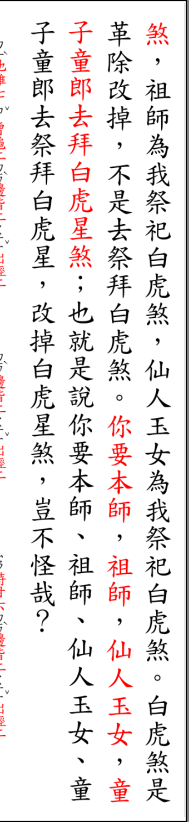 煞，祖師為我祭祀白虎煞，仙人玉女為我祭祀白虎煞。白虎煞是
革除改掉，不是去祭拜白虎煞。你要本師，祖師，仙人玉女，童
子童郎去拜白虎星煞；也就是說你要本師、祖師、仙人玉女、童
子童郎去祭拜白虎星，改掉白虎星煞，豈不怪哉？